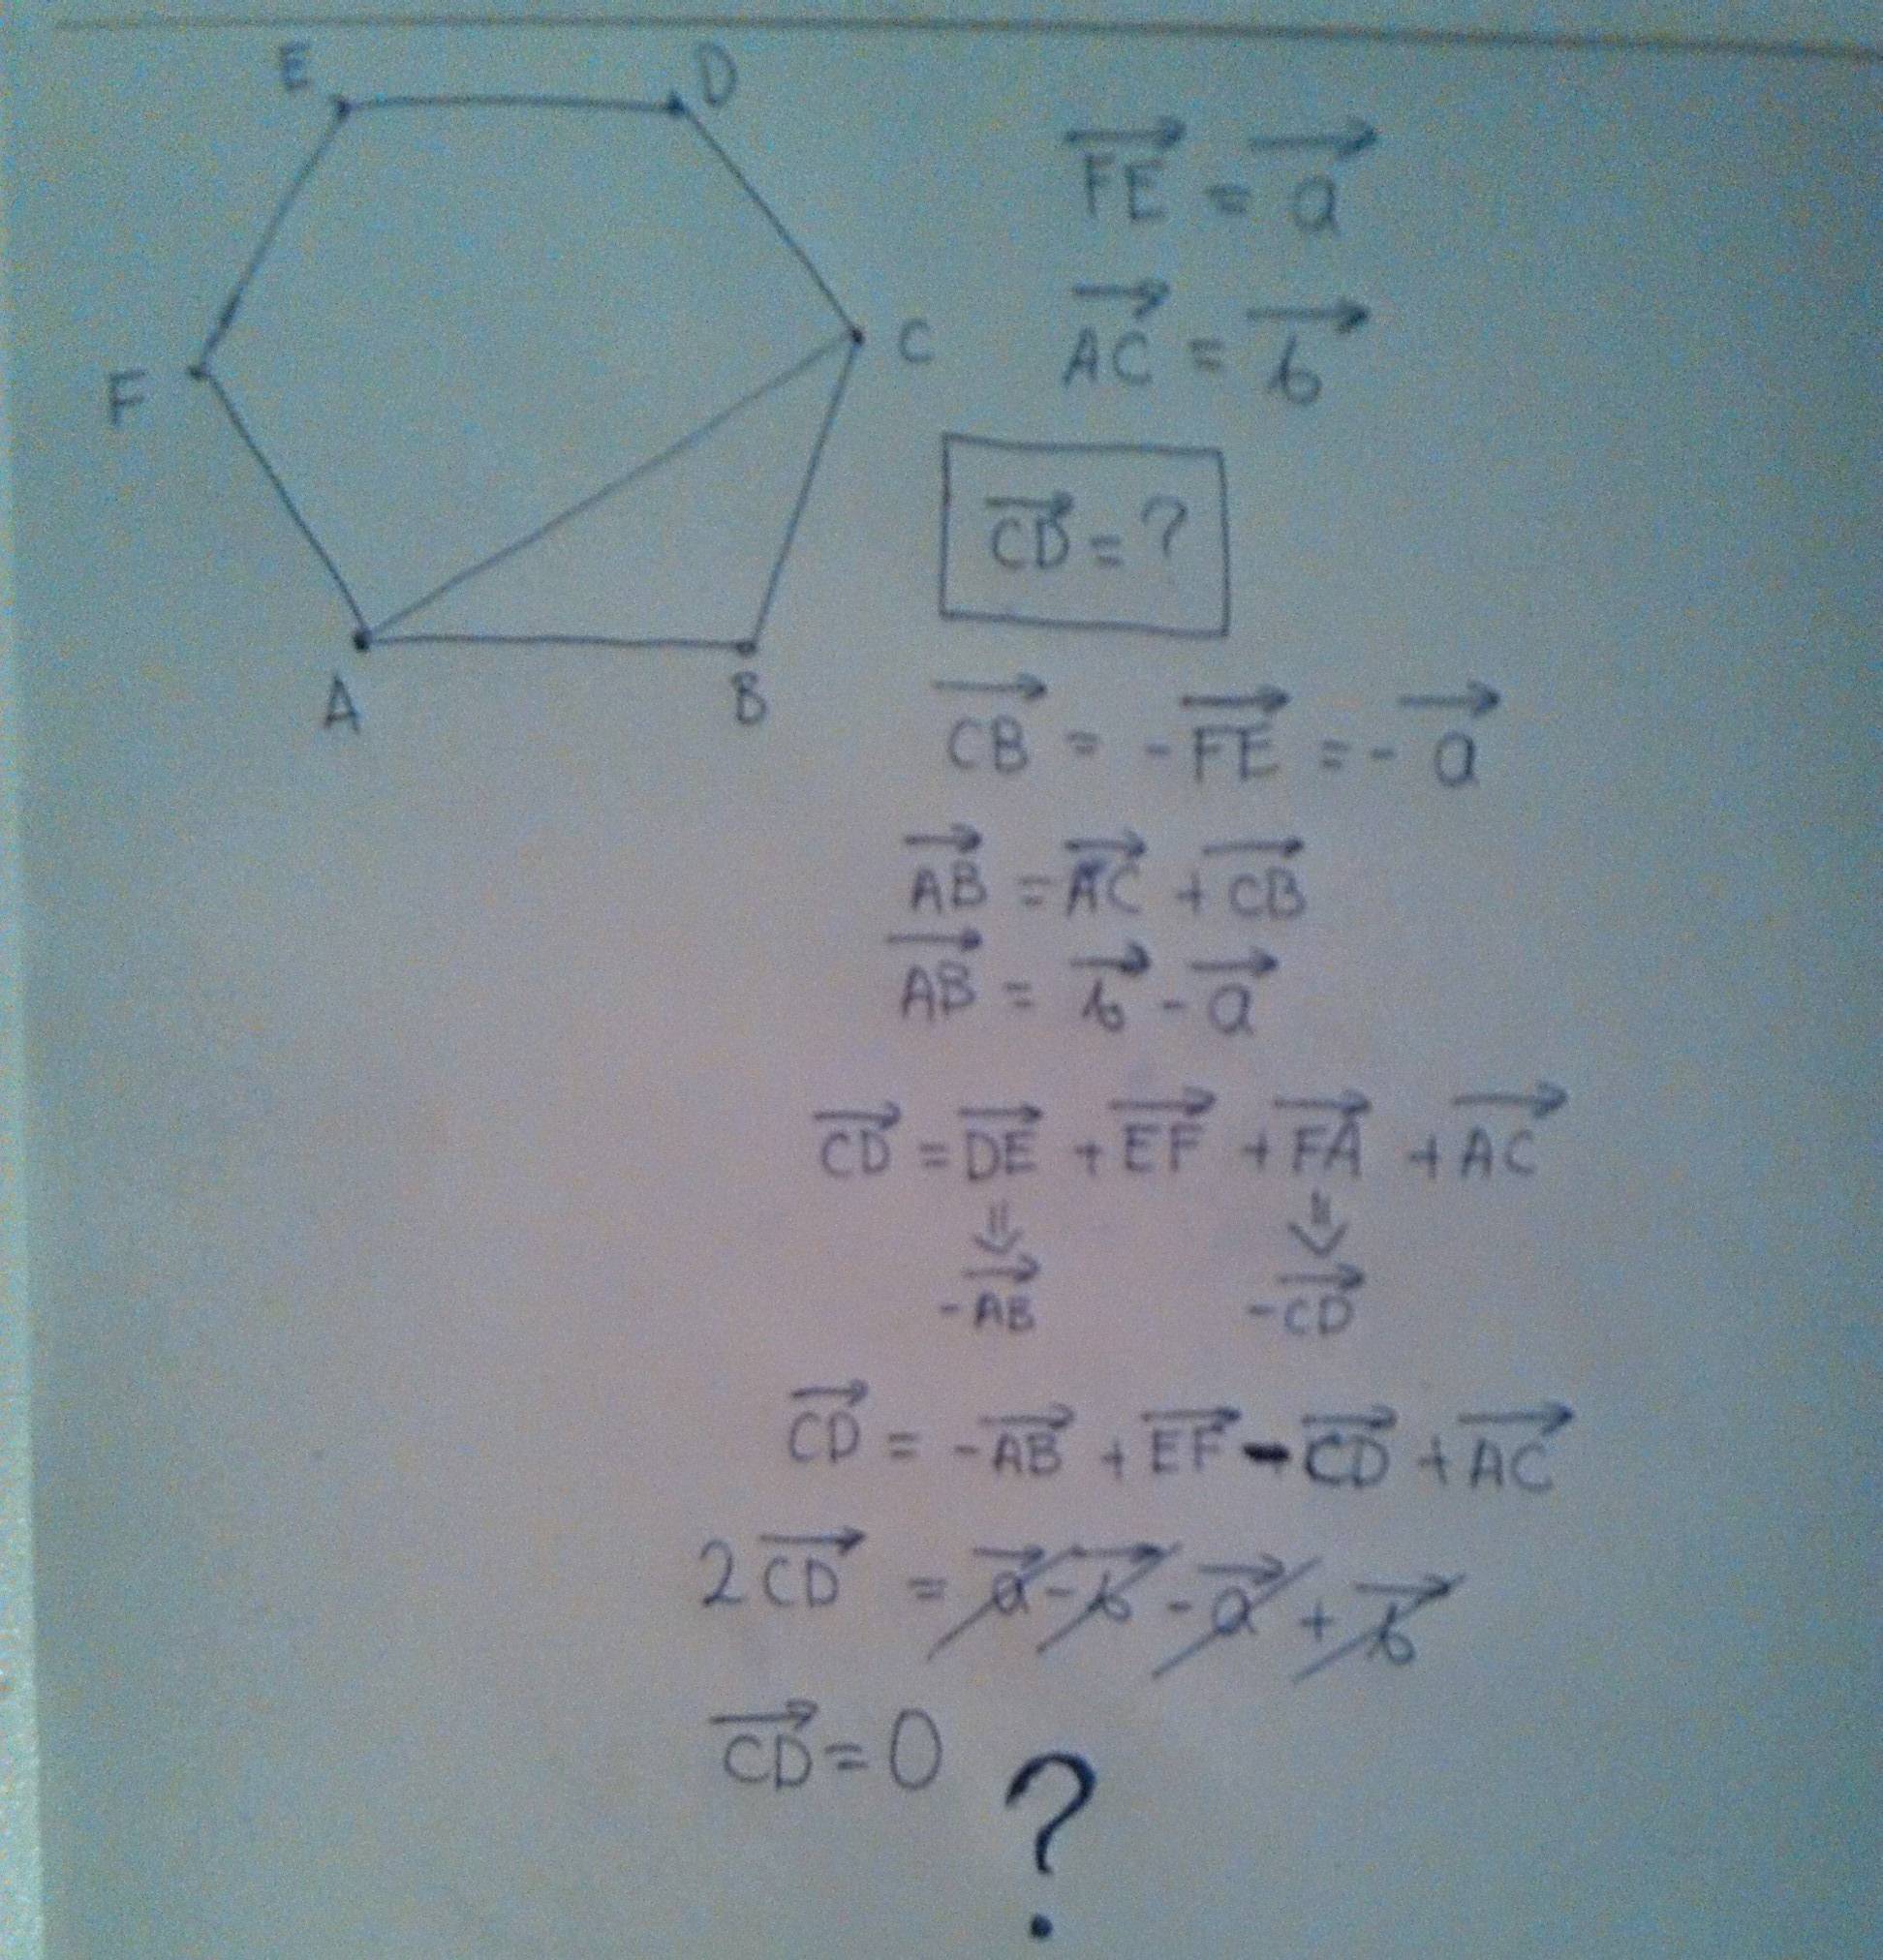 E D
F C
A B
FE = a
AC = b
CD = ?
CB = - FE = - a
AB = AC + CB
AB = b - a
CD = DE + EF + FA + AC
⇓ ⇓
-AB -CD
CD = - AB + EF - CD + AC
2 CD = a - b - a + b
CD = 0 ?